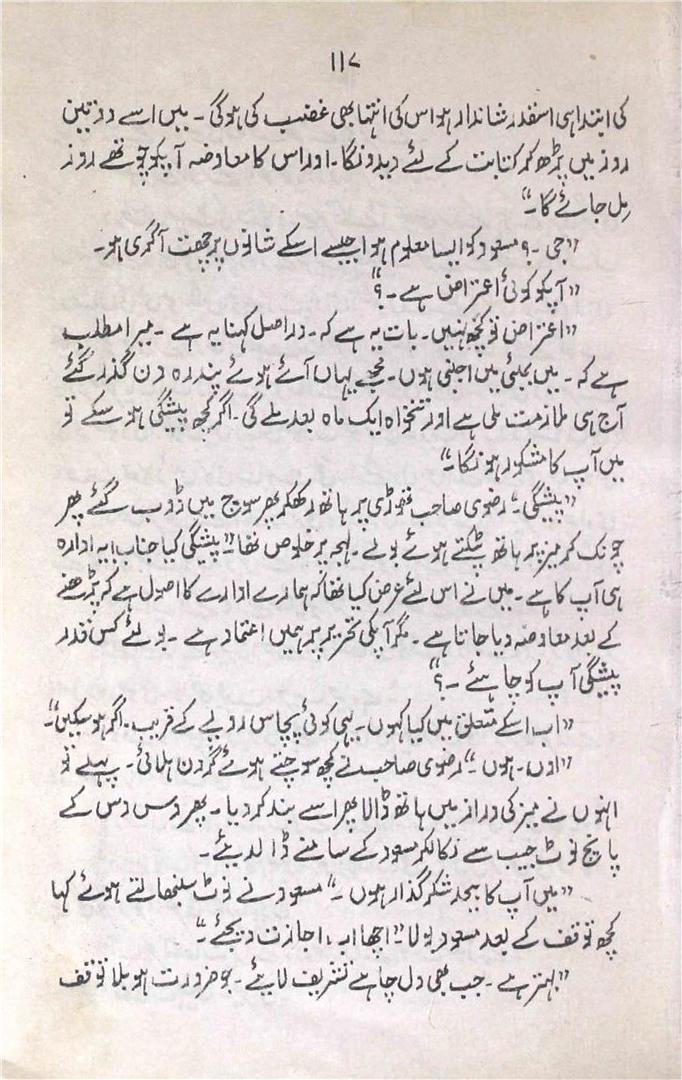 ۱۱۷
کی ابتدا ہی اسقدر شاندار ہو اس کی انتہا بھی غضب کی ہوگی ۔ میں اسے دو تین
روز میں پڑھ کر کتابت کے لئے دیدونگا ۔ اور اس کا معاوضہ آپکو چوتھے روز
مل جائے گا ۔"
"جی ۔ ؟ مسعود کو ایسا معلوم ہوا جیسے اسکے شانوں پر چھت آگری ہو ۔
"آپکو کوئی اعتراض ہے ۔ ؟"
"اعتراض تو کچھ نہیں ۔ بات یہ ہے کہ ۔ دراصل کہنا یہ ہے ۔ میرا مطلب
ہے کہ ۔ میں بمبئی میں اجنبی ہوں ۔ مجھے یہاں آئے ہوئے پندرہ دن گذر گئے
آج ہی ملازمت ملی ہے اور تنخواہ ایک ماہ بعد ملے گی ۔ اگر کچھ پیشگی ہو سکے تو
میں آپ کا مشکور ہونگا ۔"
"پیشگی ۔" رضوی صاحب ٹھوڑی پر ہاتھ رکھکر پھر سوچ میں ڈوب گئے پھر
چونک کر میز پر ہاتھ پٹکتے ہوئے بولے ۔ لہجہ پر خلوص تھا ۔" پیشگی کیا جناب! یہ ادارہ
ہی آپ کا ہے ۔ میں نے اس لئے عرض کیا تھا کہ ہمارے ادارے کا اصول ہے کہ پڑھنے
کے بعد معاوضہ دیا جاتا ہے ۔ مگر آپکی تحریر پر ہمیں اعتماد ہے ۔ بولئے کس قدر
پیشگی آپ کو چاہئے ۔ ؟"
"اب اسکے متعلق میں کیا کہوں ۔ یہی کوئی پچاس روپے کے قریب ۔ اگر ہو سکیں" ۔
"اوں ۔ ہوں ۔" رضوی صاحب نے کچھ سوچتے ہوئے گردن ہلائی ۔ پہلے تو
انہوں نے میز کی دراز میں ہاتھ ڈالا پھر اسے بند کر دیا ۔ پھر دس دس کے
پانچ نوٹ جیب سے نکالکر مسعود کے سامنے ڈالدیئے ۔
"میں آپ کا بیحد شکر گذار ہوں ۔" مسعود نے نوٹ سنبھالتے ہوئے کہا
کچھ توقف کے بعد مسعود بولا ۔" اچھا اب ، اجازت دیجئے ۔"
"بہتر ہے ۔ جب بھی دل چاہے تشریف لایئے ۔ جو ضرورت ہو بلا توقف